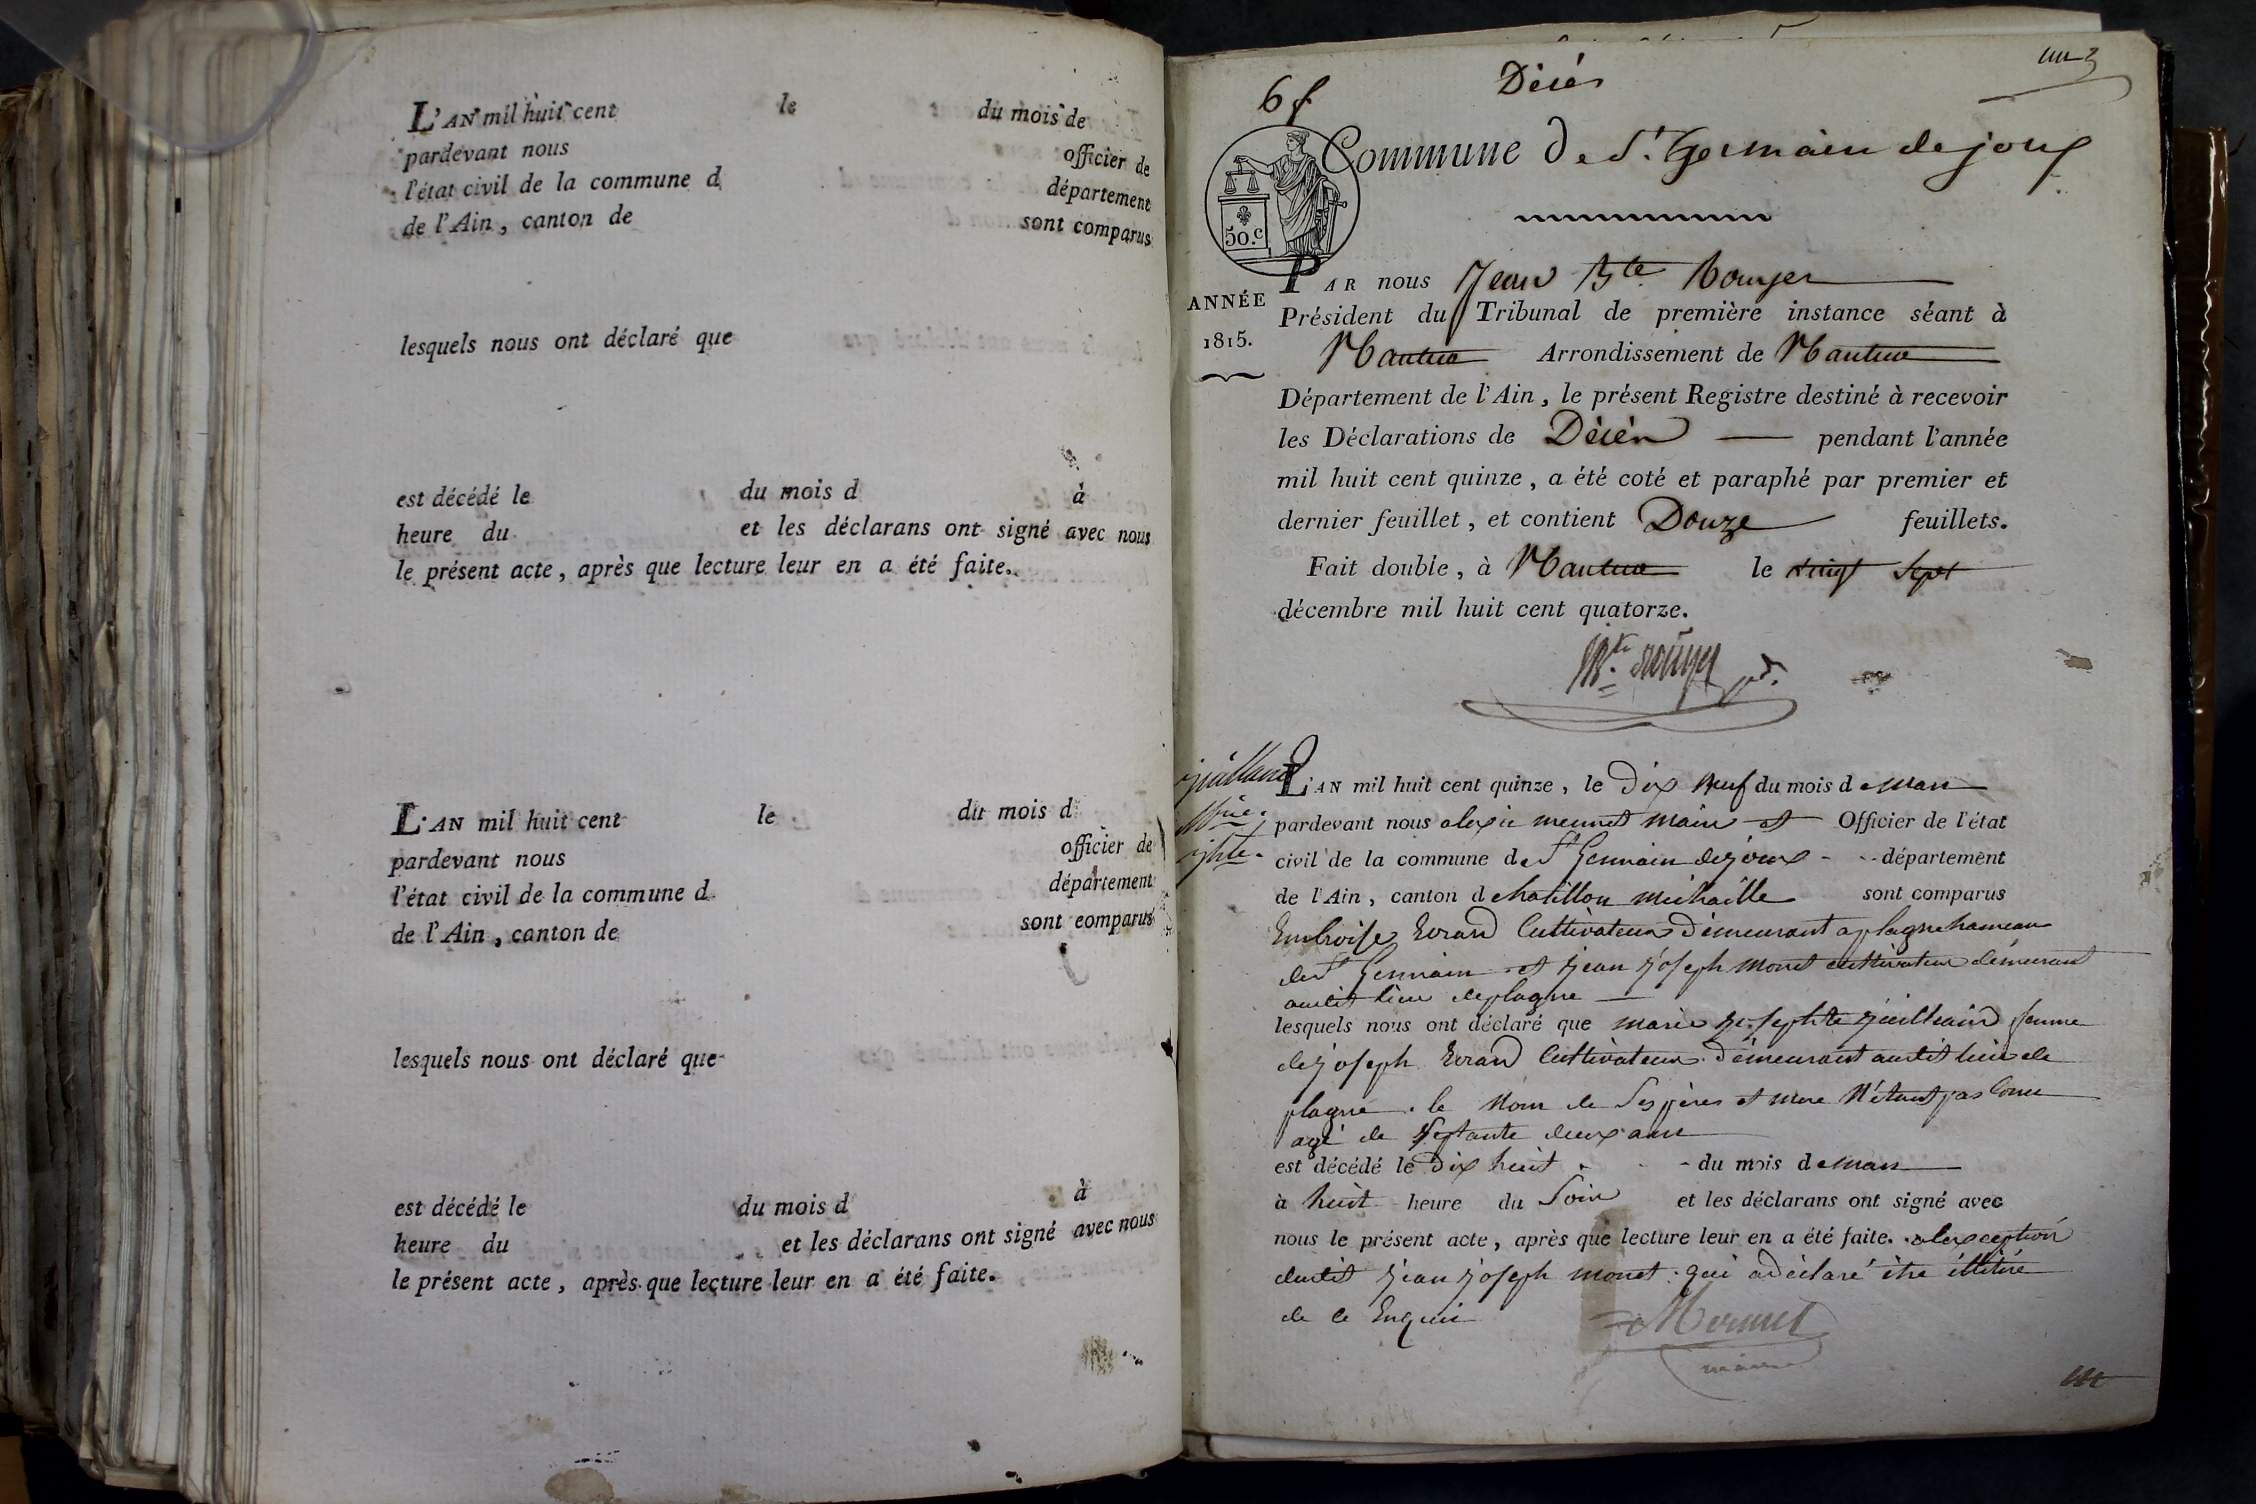 L'AN mil huit cent le du mois de
pardevant nous officier de
l'état civil de la commune d département
de l'Ain, canton de sont comparus
lesquels nous ont déclaré que
est décédé le du mois d à
heure du et les déclarans ont signé avec nous
le présent acte, après que lecture leur en a été faite.
L'AN mil huit cent le du mois d
pardevant nous officier de
l'état civil de la commune d département
de l'Ain, canton de sont comparus
lesquels nous ont déclaré que
est décédé le du mois d à
heure du et les déclarans ont signé avec nous
le présent acte, après que lecture leur en a été faite.
6 f Décés
Commune de St. Germain de joux
50.c
ANNÉE
1815.
PAR nous Jean Bte Rouyer
Président du Tribunal de première instance séant à
Nantua Arrondissement de Nantua
Département de l'Ain, le présent Registre destiné à recevoir
les Déclarations de Décés pendant l'année
mil huit cent quinze, a été coté et paraphé par premier et
dernier feuillet, et contient Douze feuillets.
Fait double, à Nantua le vingt Sept
décembre mil huit cent quatorze.
Bte Rouyer
L'AN mil huit cent quinze, le Dix Neuf du mois de mars
pardevant nous alexis mermet maire et Officier de l'état
civil de la commune de St Germain de joux département
de l'Ain, canton de chatillon michaille sont comparus
Embroise Evrard Cultivateur demeurant a plagne hameau
de St Germain et jean joseph monet cultivateur demeurant
audit lieu de plagne
lesquels nous ont déclaré que marie josephte juilliard femme
de joseph Evrard Cultivateur demeurant audit lieu de
plagne. le Nom de Ses pères et mere N'étant pas Conu
agé de Septante deux ans
est décédé le Dix huit du mois de mars
à huit heure du Soir et les déclarans ont signé avec
nous le présent acte, après que lecture leur en a été faite. alexception
dudit jean joseph monet qui a déclaré être illitiré
de ce Enquis
Mermet
maire